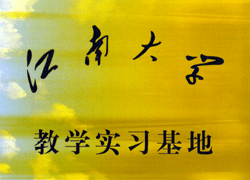 江南大学
教学实习基地